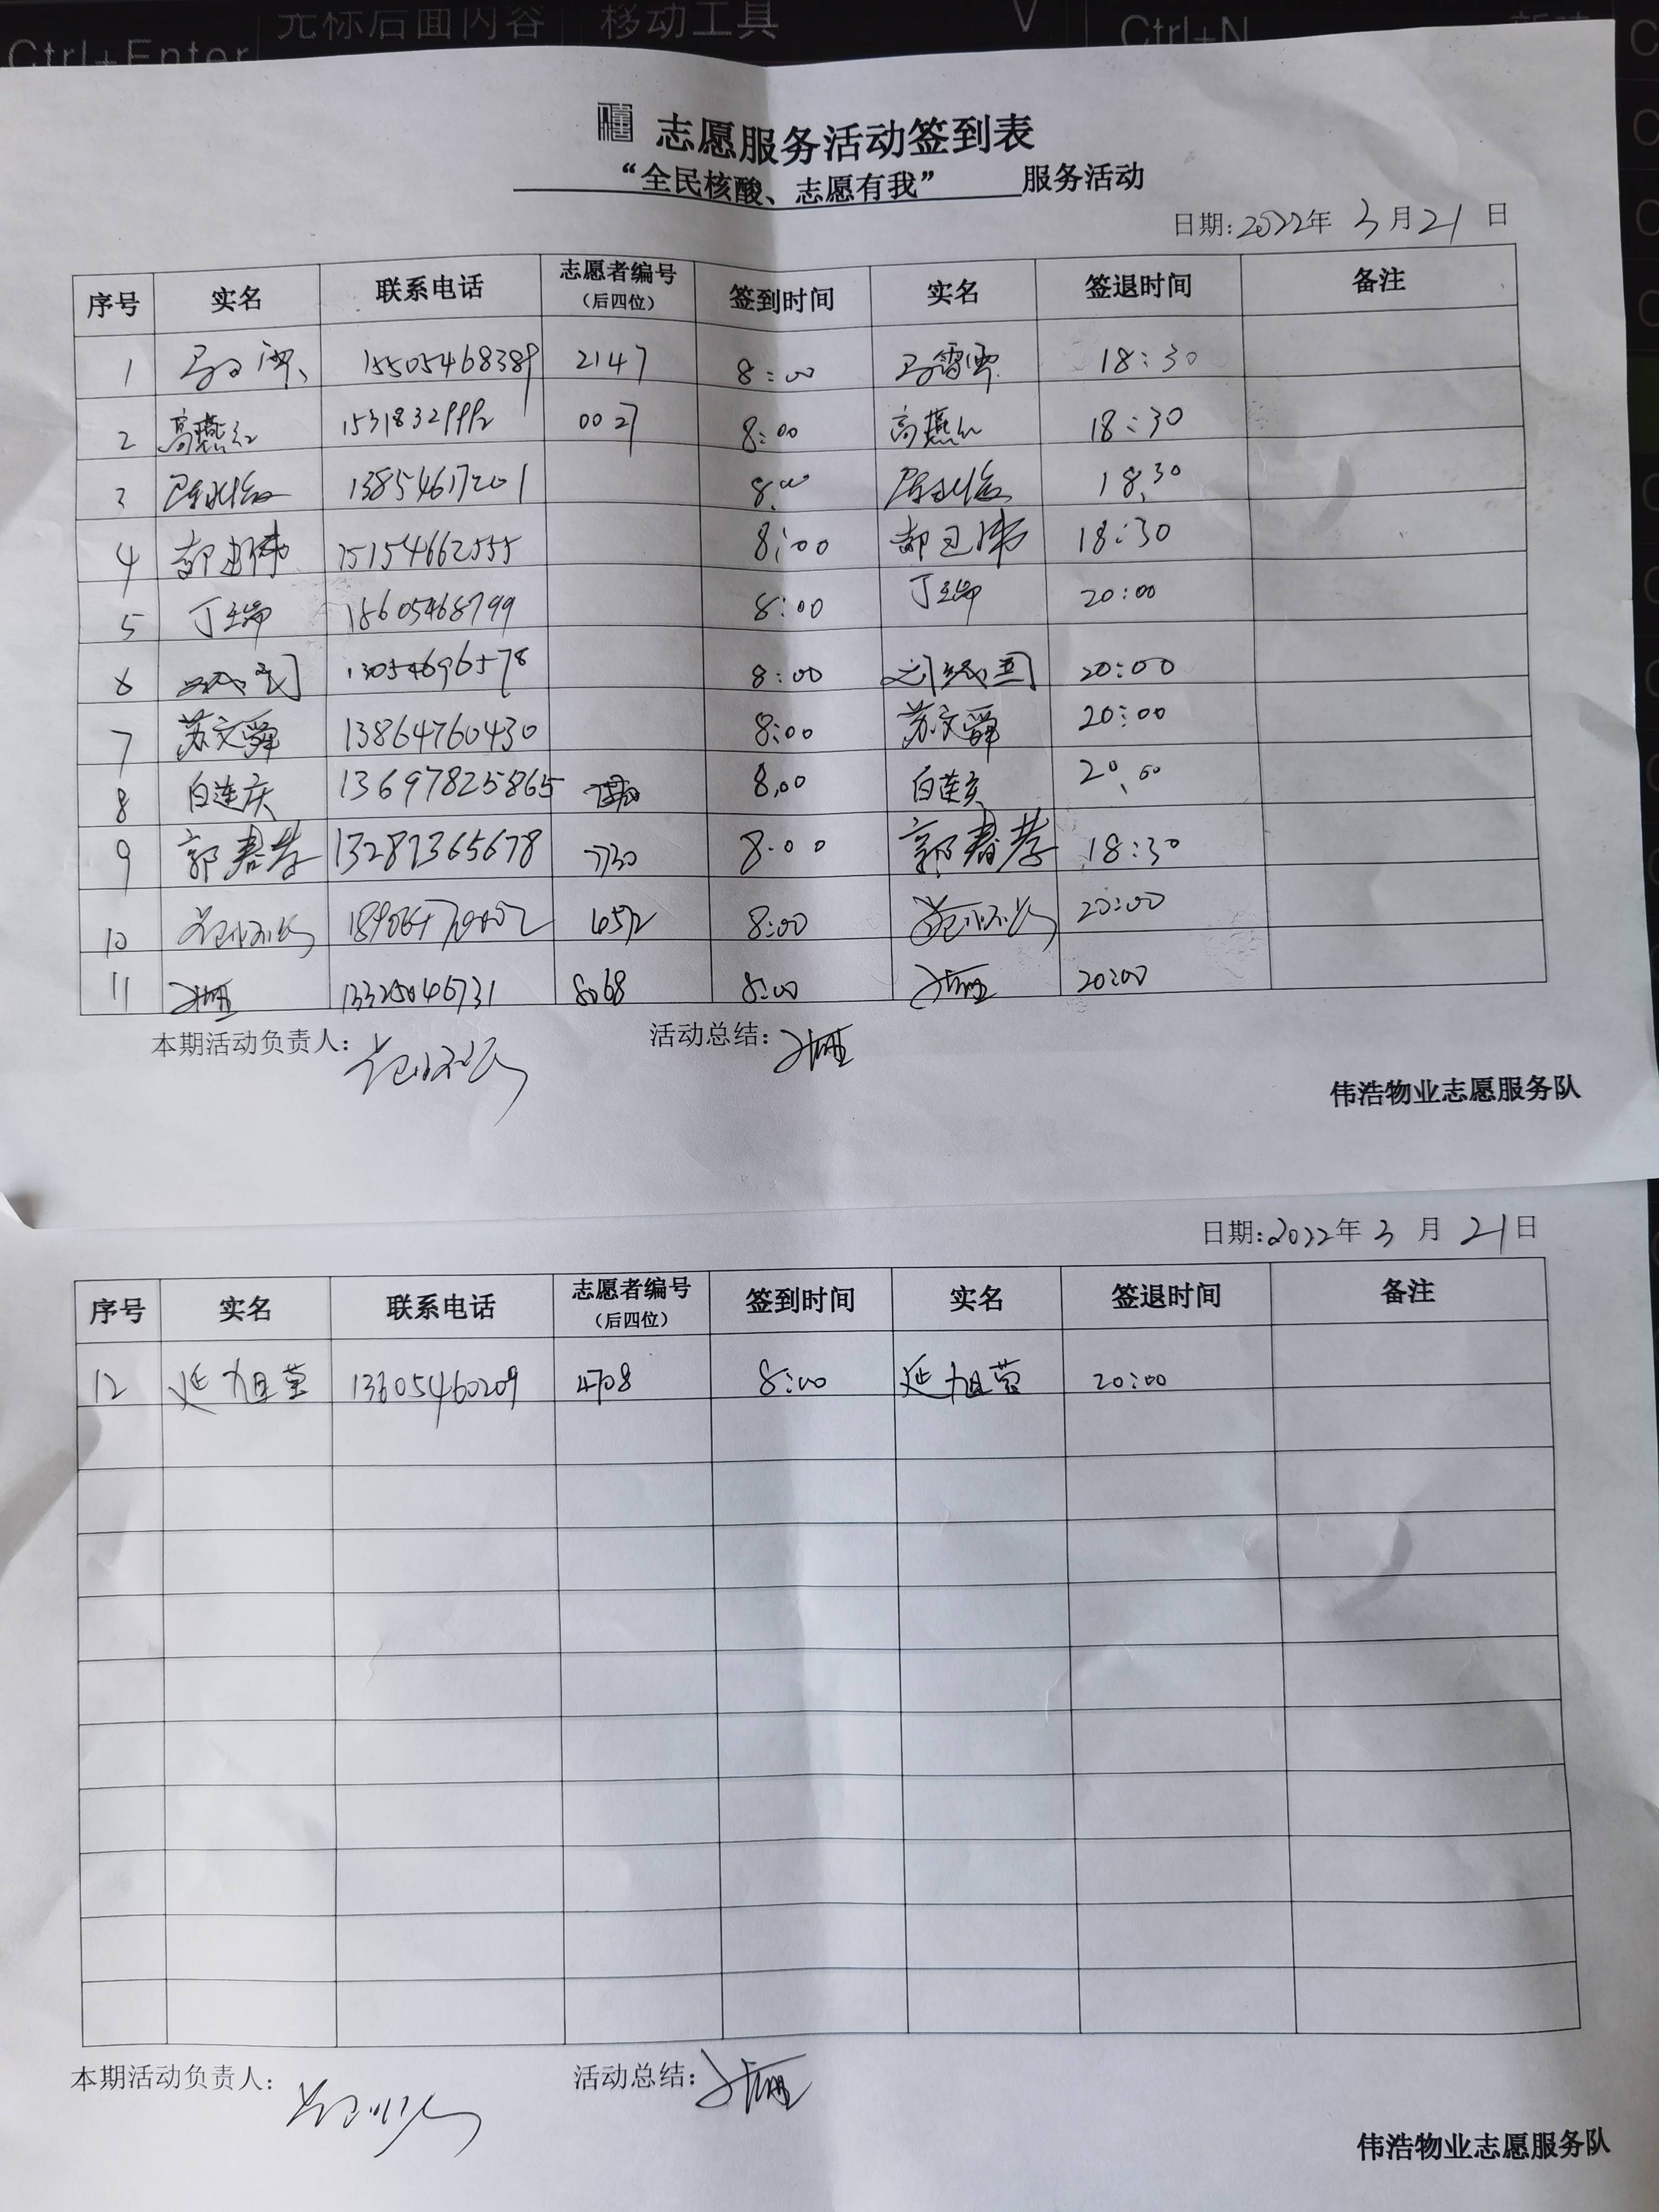 Ctrl+Enter 光标后面内容 移动工具 V Ctrl+N
志愿服务活动签到表
“全民核酸、志愿有我” 服务活动
日期:2022年 3月21日
序号 实名 联系电话 志愿者编号（后四位） 签到时间 实名 签退时间 备注
1 15505468389 2147 8:00 马雷雷 18:30
2 高燕红 15318329992 0027 8:00 高燕红 18:30
3 13854617201 8:00 18:30
4 15154662555 8:00 18:30
5 丁瑞 15605468799 8:00 丁瑞 20:00
6 13054696578 8:00 20:00
7 苏文舜 13864760430 8:00 苏文舜 20:00
8 白连庆 13697825865 8:00 白连庆 20:00
9 郭春孝 13287365678 7730 8:00 郭春孝 18:30
10 8:00 20:00
11 13325046731 8068 8:00 20:00
本期活动负责人: 活动总结:
伟浩物业志愿服务队
日期:2022年 3月 21日
序号 实名 联系电话 志愿者编号（后四位） 签到时间 实名 签退时间 备注
12 延旭莹 13605460209 4708 8:00 延旭莹 20:00
本期活动负责人: 活动总结:
伟浩物业志愿服务队